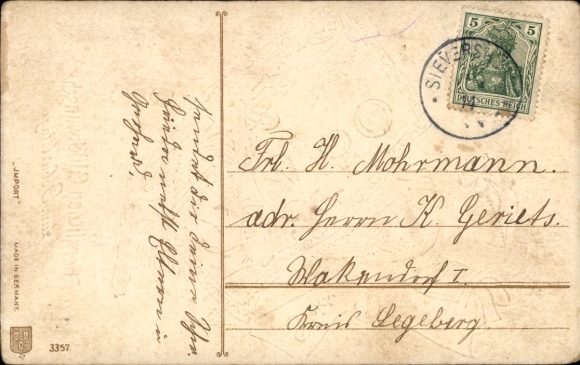 5 5
DEUTSCHES REICH
SIEVERS
Frl. H. Mohrmann.
adr. Herrn K. Geriets.
Wakendorf I.
Kreis Segeberg.
sendet dir deine
nebst Eltern u
"IMPORT"
MADE IN GERMANY.
3357